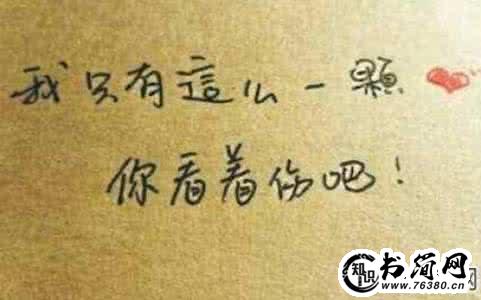 我只有這么一顆❤
你看着伤吧！
知识
书简网
www.76380.cn